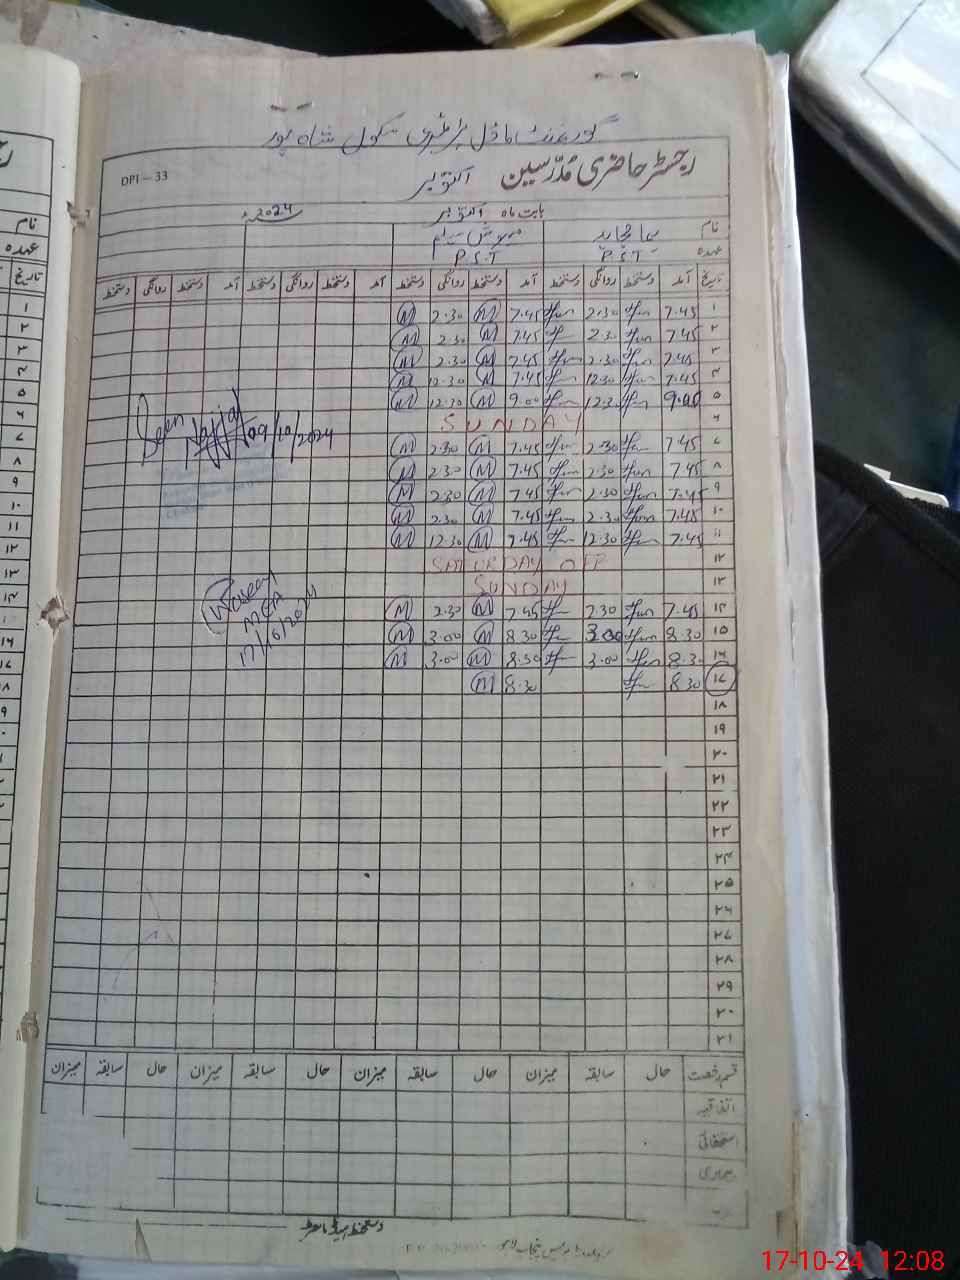 گورنمنٹ ماڈل پرائمری سکول شاہ پور
DPI – 33
رجسٹر حاضری مُدرّسین اکتوبر
بابت ماہ اکتوبر 2024ء
نام
عہدہ P.S.T P.S.T
تاریخ آمد دستخط روانگی دستخط آمد دستخط روانگی دستخط آمد دستخط روانگی دستخط آمد دستخط روانگی دستخط
۱ 7.45 2.30 7.45 M 2.30 M
۲ 7.45 2.30 7.45 M 2.30 M
۳ 7.45 2.30 7.45 M 2.30 M
۴ 7.45 12.30 7.45 M 12.30 M
۵ 9.00 12.30 9.00 M 12.30 M
۶ SUNDAY
۷ 7.45 2.30 7.45 M 2.30 M
Seen 09/10/2024
۸ 7.45 2.30 7.45 M 2.30 M
۹ 7.45 2.30 7.45 M 2.30 M
۱۰ 7.45 2.30 7.45 M 2.30 M
۱۱ 7.45 12.30 7.45 M 12.30 M
۱۲ SATURDAY OFF
۱۳ SUNDAY
Waseem
MEA
17/10/2024
۱۴ 7.45 2.30 7.45 M 2.30 M
۱۵ 8.30 3.00 8.30 M 3.00 M
۱۶ 8.30 3.00 8.30 M 3.00 M
۱۷ 8.30 8.30 M
۱۸
۱۹
۲۰
۲۱
۲۲
۲۳
۲۴
۲۵
۲۶
۲۷
۲۸
۲۹
۳۰
۳۱
قسم رخصت حال سابقہ میزان حال سابقہ میزان حال سابقہ میزان حال سابقہ میزان
اتفاقیہ
استحقاقی
بیماری
دستخط ہیڈ ماسٹر
17-10-24 12:08